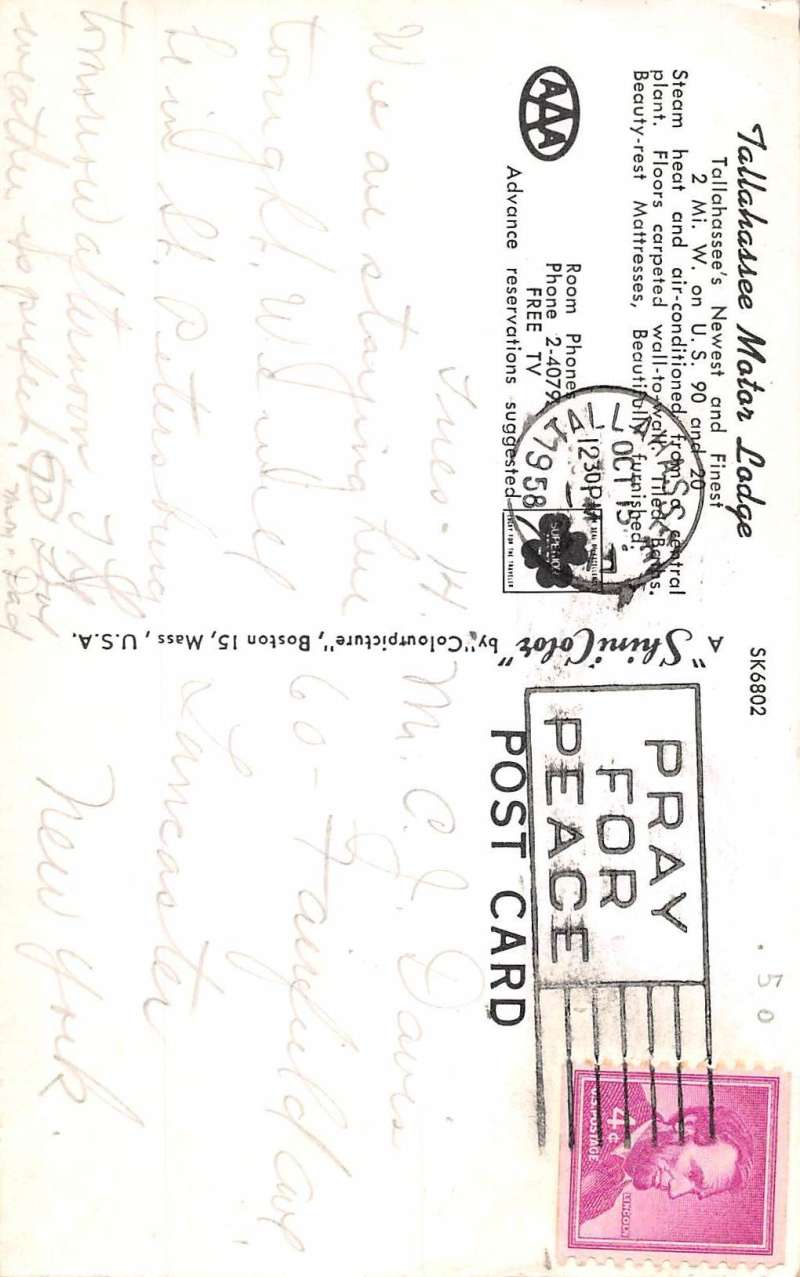 Tallahassee Motor Lodge
Tallahassee's Newest and Finest
2 Mi. W. on U. S. 90 and 20
Steam heat and air-conditioned from a central
plant. Floors carpeted wall-to-wall. Tiled Baths.
Beauty-rest Mattresses, Beautifully furnished.
AAA
Room Phones
Phone 2-4079
FREE TV
Advance reservations suggested
TALLAHASSEE
OCT 15
12 30 PM
1958
SUPERIOR
FOR THE TRAVELER
Tues - 14.
We are staying here
tonight. Will
be in St. Petersburg
tomorrow afternoon. The
weather is perfect.
Mom & Dad
A "ShiniColor" by "Colourpicture", Boston 15, Mass, U.S.A.
SK6802
PRAY
FOR
PEACE
POST CARD
.50
4¢
U.S. POSTAGE
LINCOLN
M. C. J. Davis
60 - Fairfield Ave.
Lancaster
New York.